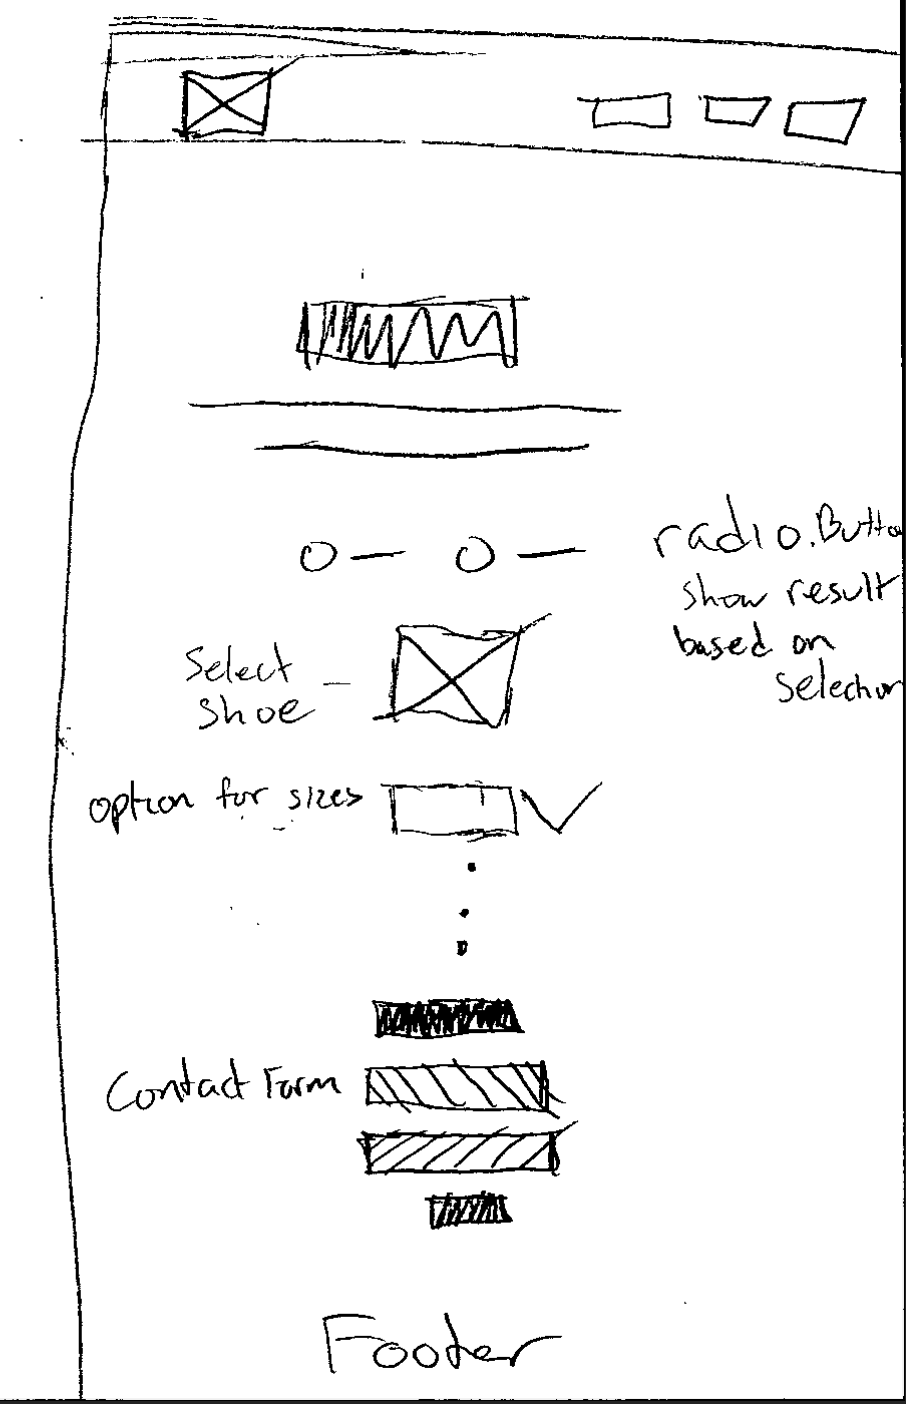 radio.Butto
show result
based on
Selection
Select
Shoe
option for sizes
Contact Form
Footer